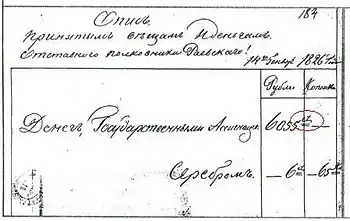 184
Опись
Принятымъ вещамъ и деньгамъ
Отставнаго полковника Раевскаго!
14го Генваря 1826 года
Рубли Копейки
Денегъ, Государственными Ассигнац. 6055 —
Серебромъ. — 6 — 65